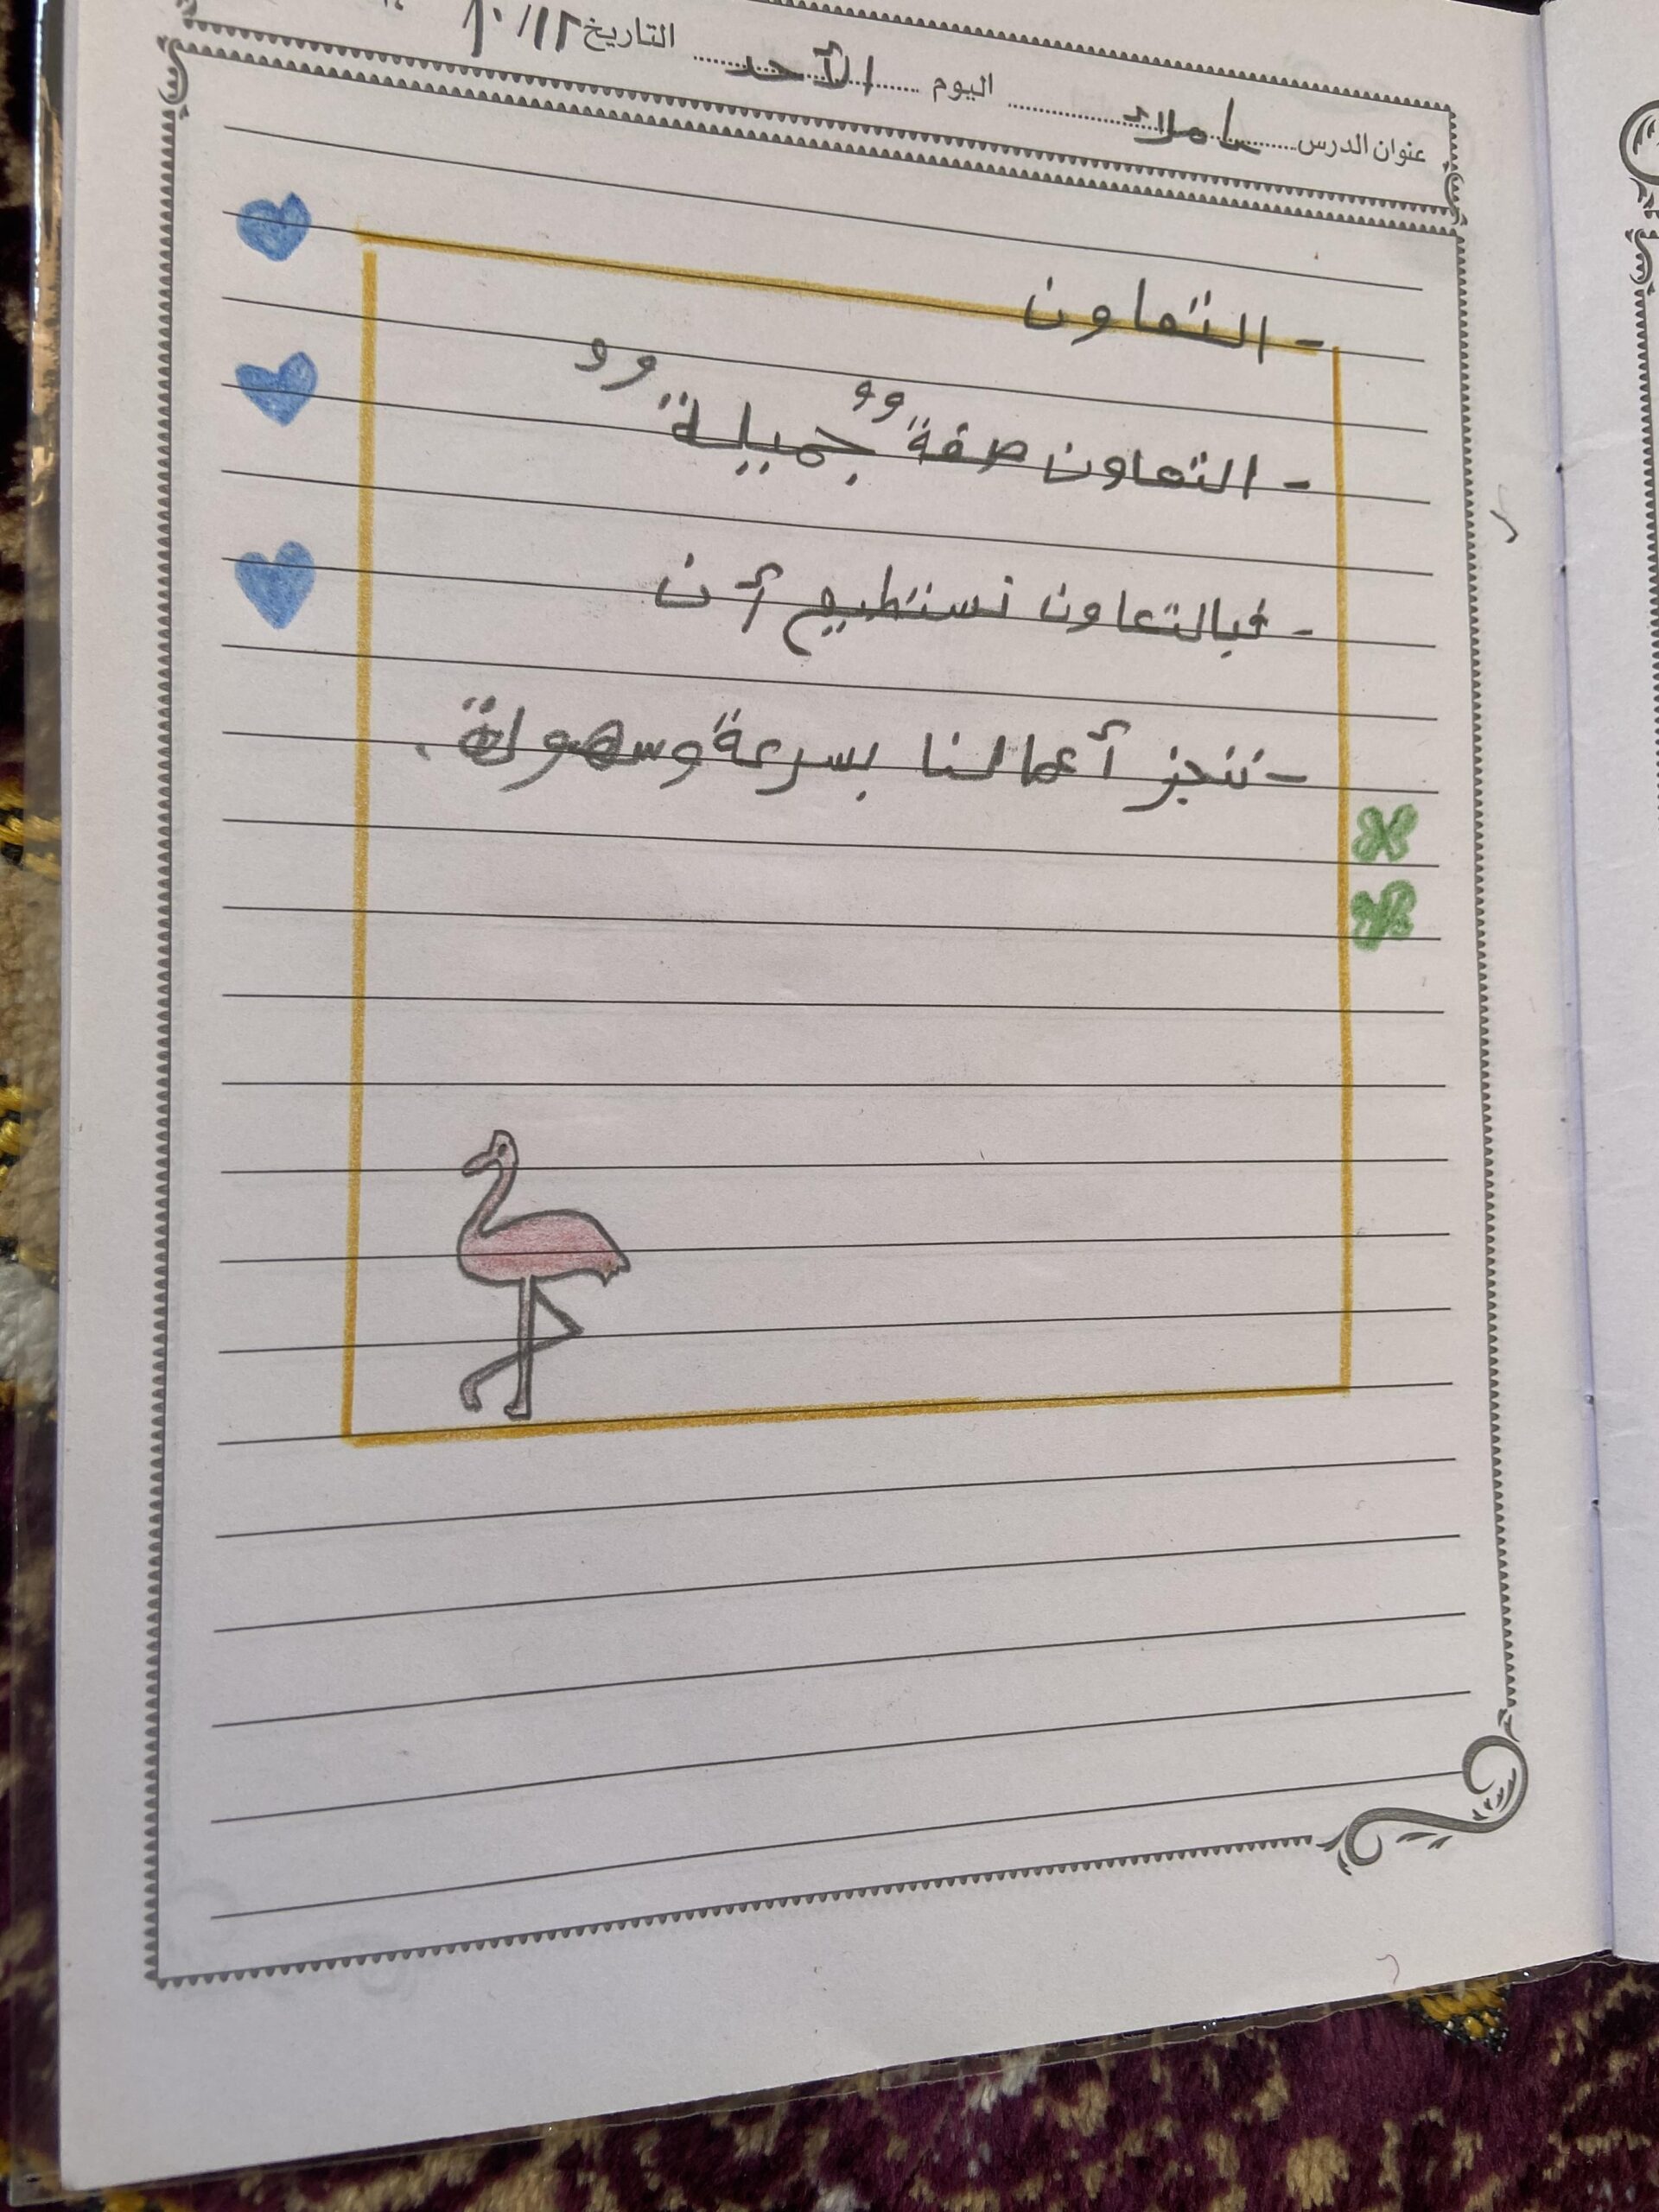 عنوان الدرس املاء اليوم الأحد التاريخ ١٢/ ١٠
- التعاون
- التعاون صفةٌ جميلةٌ
- فبالتعاون نستطيع أن
- ننجز أعمالنا بسرعة وسهولة .